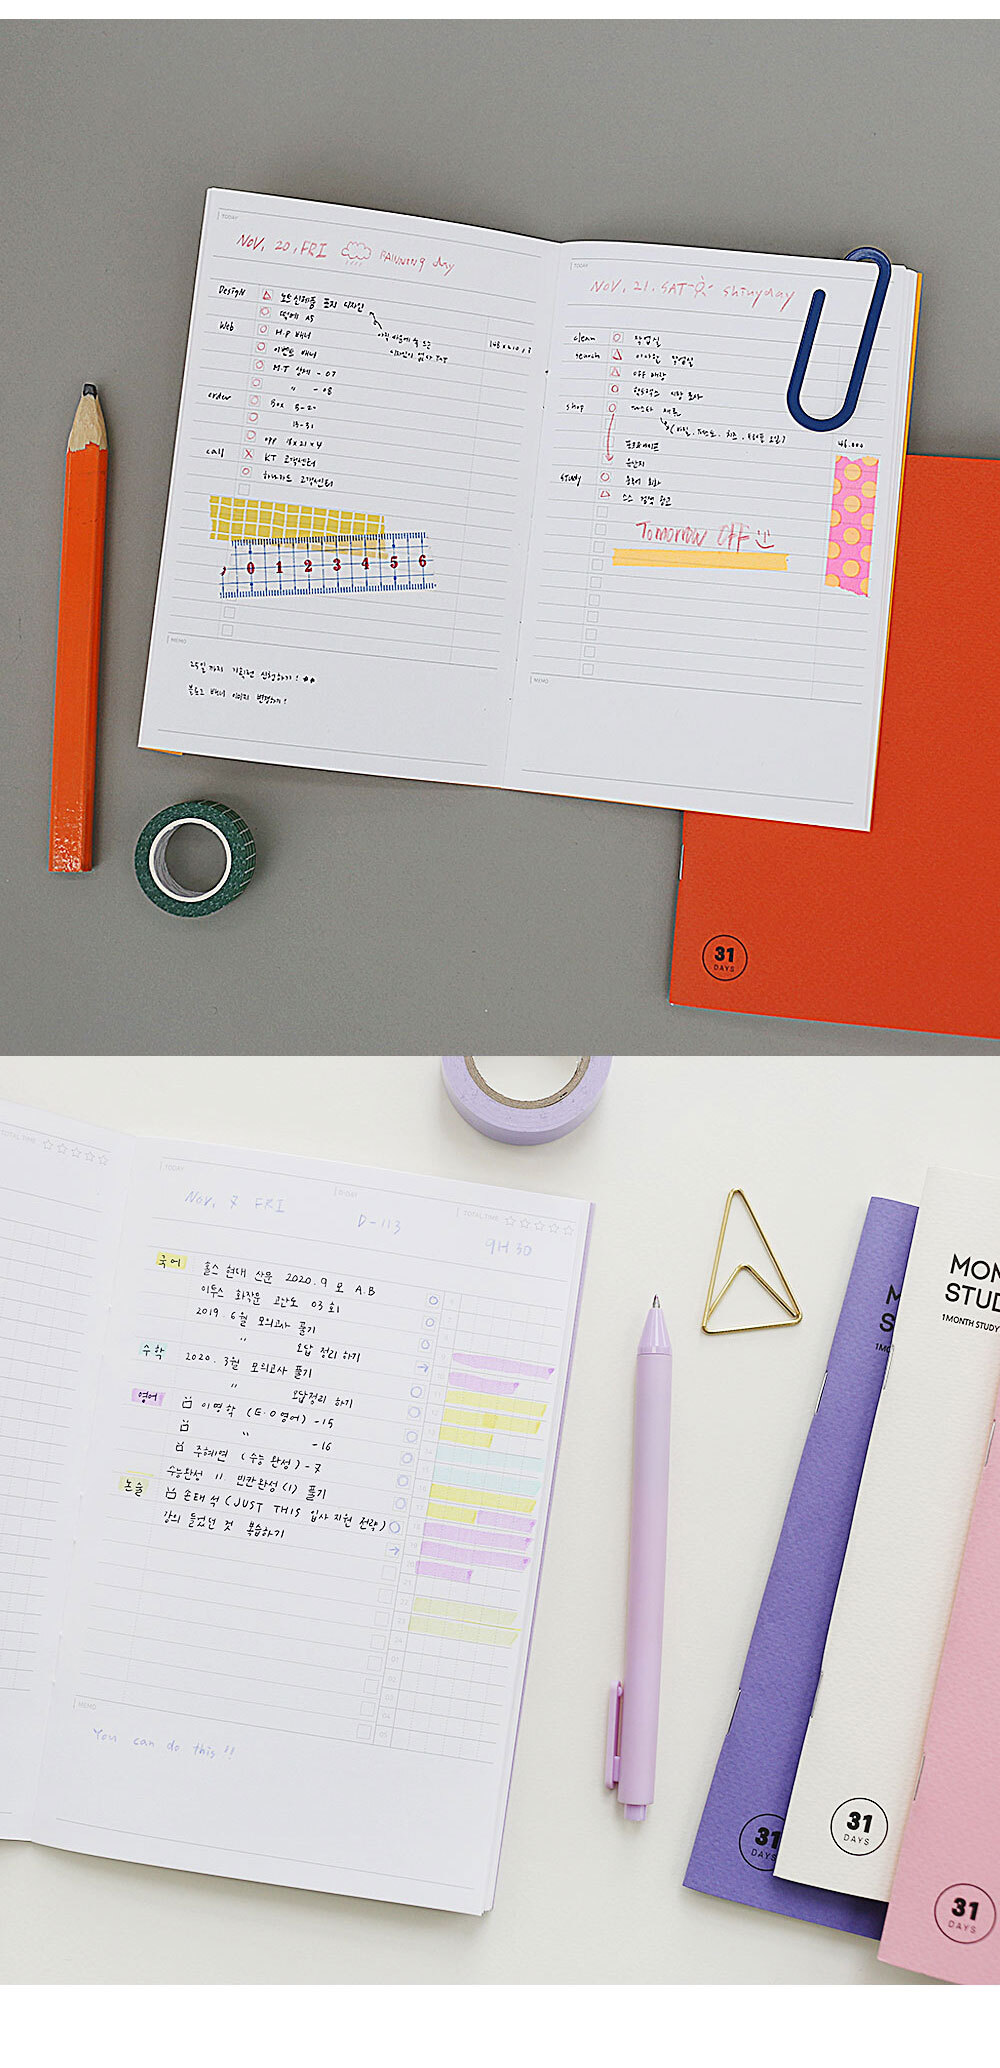 TODAY
NOV, 20, FRI RAINNING day
Design 노트신제품 표지 디자인
떡메 A5
아직 마음에 쏙 드는
디자인이 없다 TㅁT
Web H.P 배너
이벤트 배너
M.T 상세 - 07
" - 08
order Box 5-2
13-31
opp 16 x 21 x 4
call KT 고객센터
하나카드 고객센터
0 1 2 3 4 5 6
MEMO
25일까지 기획전 신청하기!
블로그 배너 이미지 변경하기!
TODAY
NOV, 21. SAT shinyday
clean 작업실
search 작업실
OFF 매장
시장 조사
shop 재료
46.000
포토테이프
study 회화
Tomorrow OFF
MEMO
31
DAYS
TOTAL TIME
TODAY
Nov, 7 FRI
D-DAY
D-113
TOTAL TIME
9H 30
국어 홀스 현대 산문 2020.9 모 A.B
이투스 화작문 고난도 03회
2019 6월 모의고사 풀기
" 오답 정리 하기
수학 2020. 3월 모의고사 풀기
" 오답정리 하기
영어 이명학 (E.O영어) -15
" -16
주혜연 (수능 완성) - 7
수능완성 11. 빈칸완성(1) 풀기
논술 손태석 (JUST THIS 입사 지원 전략)
강의 들었던 것 복습하기
MEMO
You can do this!!
MON
STUD
1 MONTH STUDY
31
DAYS
31
DAYS
31
DAYS